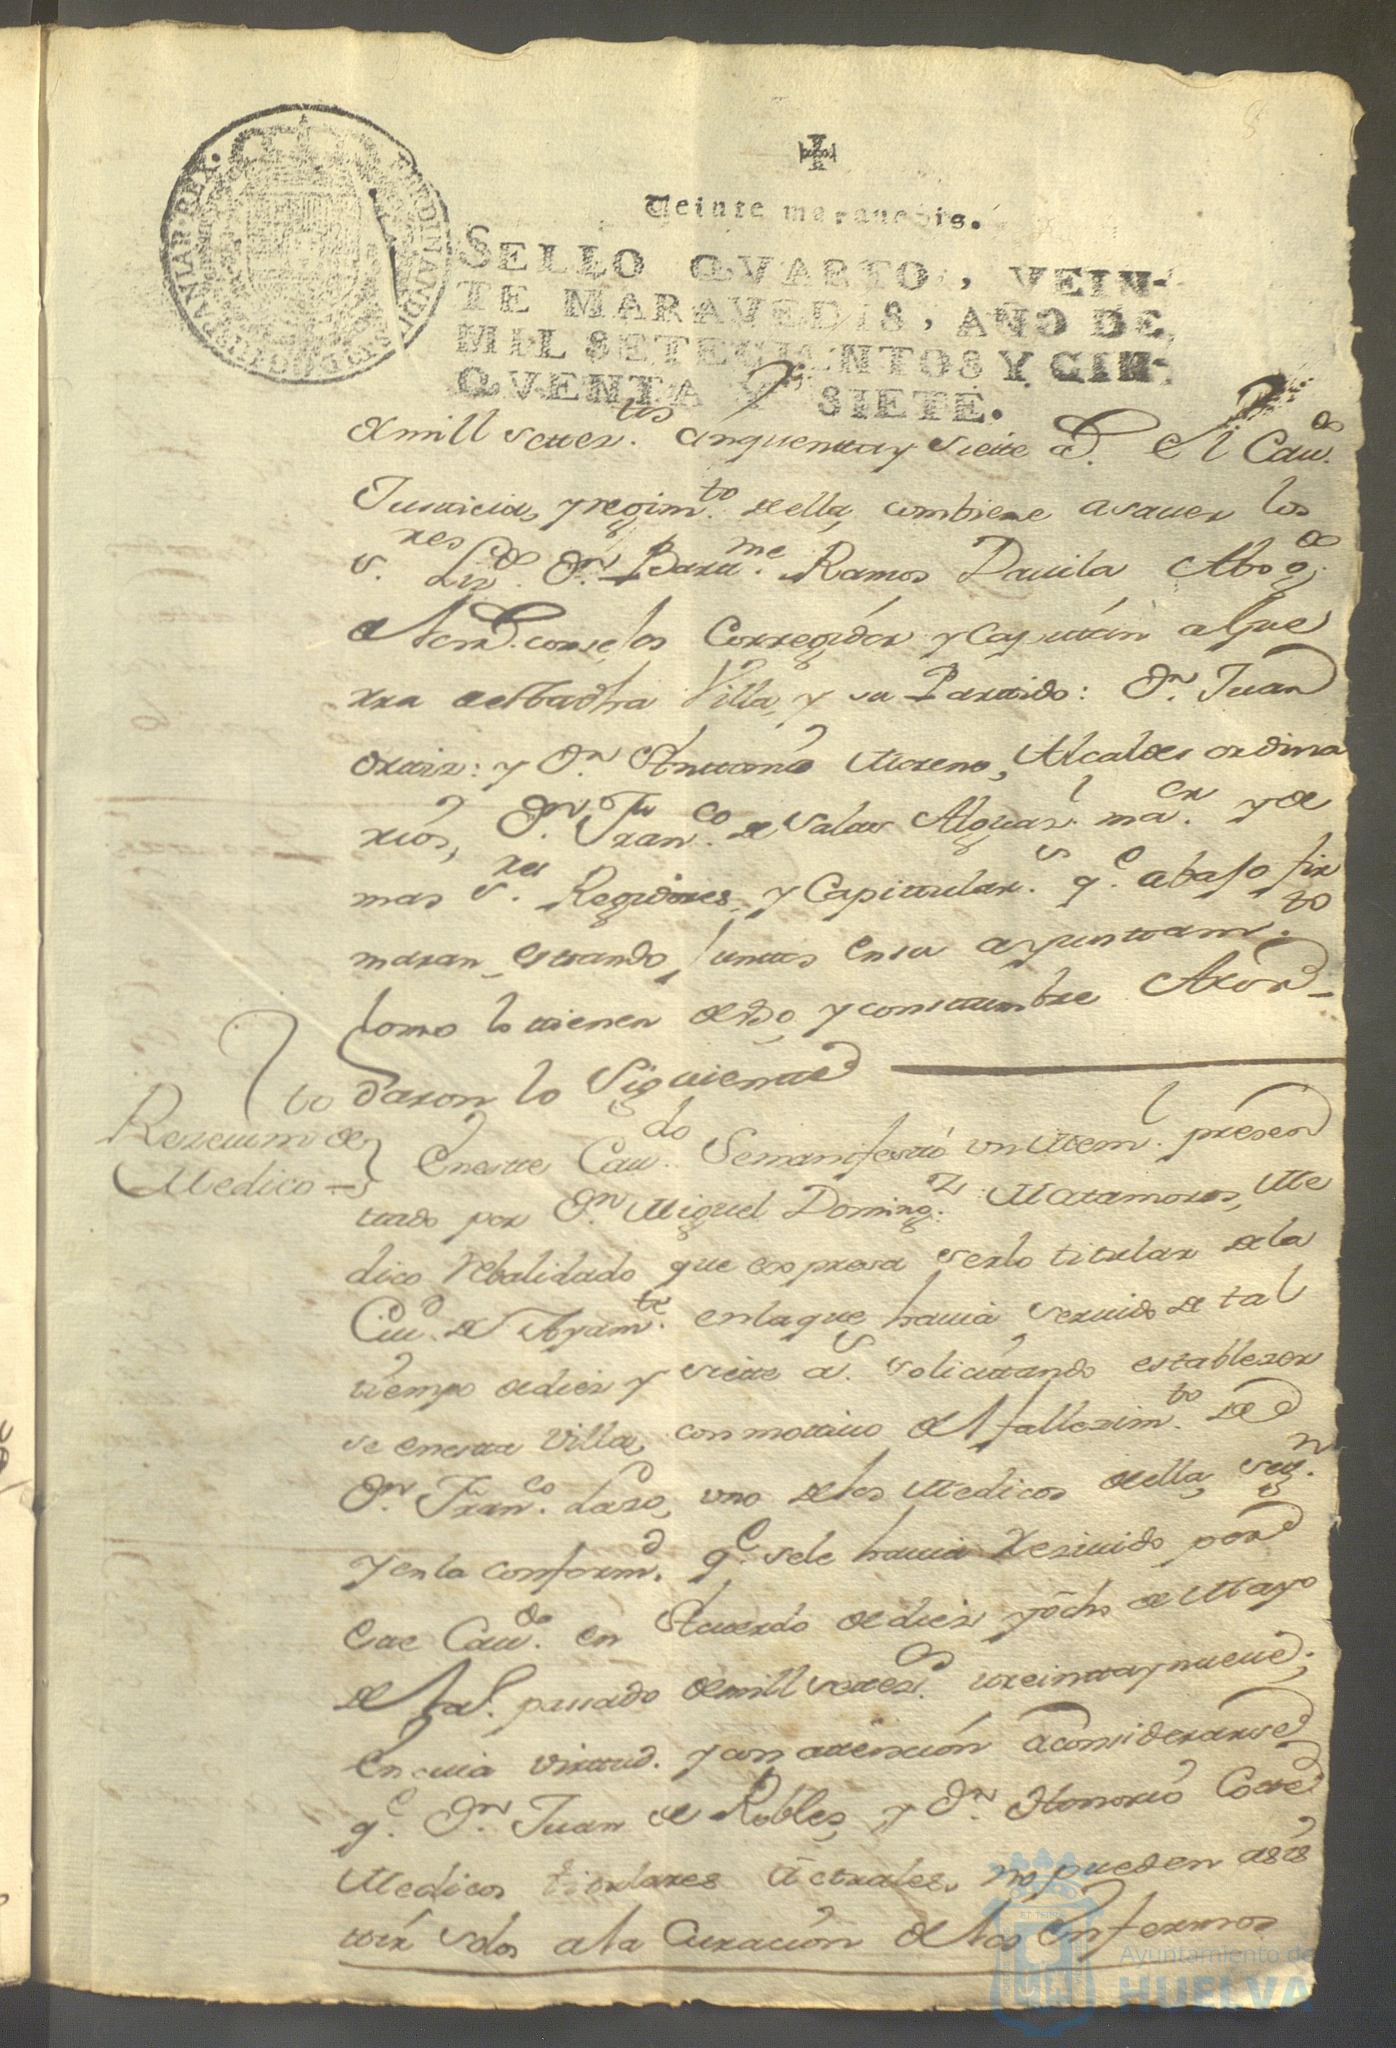 8
Veinte marauedis.
SELLO QVARTO, VEIN-
TE MARAVEDIS, AÑO DE
MIL SETECIENTOS Y CIN-
QVENTA Y SIETE.
FERDINANDUS VI D G HISPANIAR REX
de mill setez.tos cinquenta y siette a.s El Cau.do
Justicia, y regim.to de ella, combiene a sauer los
s.res Liz.do D.n Bartt.me Ramos Dauila Abog.do
de los R.s consejos Corregidor y Capittán a Gue
rra de dha Villa, y su Parttido: D.n Juan
Orttiz: y D.n Anttonio Moreno, Alcaldes ordina
rios, D.n Fran.co de Salas Alguaz.l ma.or y de
mas s.res Regidores, y Capittular.s q.e abajo fir
maran, esttando junttos en su ayunttam.to
como lo ttienen de vso, y consttumbre Acor-
daron lo Siguientte
Reseuim.to de
Medico
En estte Cau.do Se manifesttó vn Mem.l presen
ttado por D.n Miguel Doming.z Matamoros, Me
dico Rebalidado que expresa serlo titular de la
Ciu.d de Ayam.te en la que hauia seruido de tal
tiempo de diez y siette a.s solicittando establezer
se en estta Villa, con mottiuo del fallezim.to de
D.n Fran.co Lazo, vno de los Medicos de ella, seg.n
y en la conform.d q.e se le hauia Reziuido por
estte Cau.do en Acuerdo de diez y ocho de Mayo
del a.o passado de mill setez.s ttreintta y nueue;
En cuia virttud. y con attención a considerarse
q.e D.n Juan de Robles, y D.n Honorio Cortte
Medicos titulares Actuales, no pueden asis
ttir solos a la Curación de los Enfermos
Ayuntamiento de
HUELVA